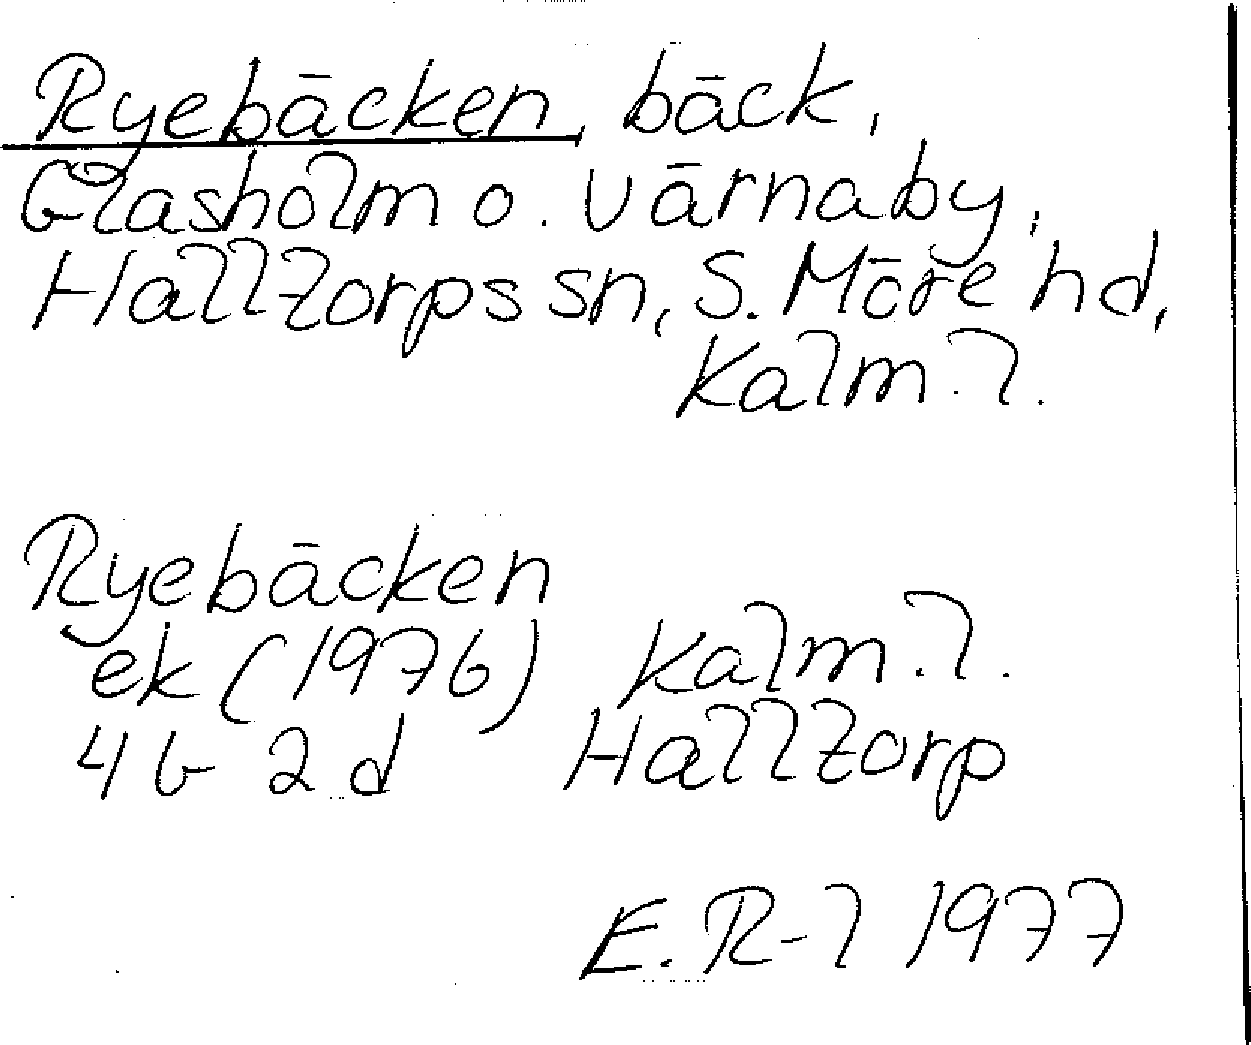 Ryebäcken, bäck,
Glasholm o. Värnaby,
Halltorps sn, S. Möre hd,
Kalm. l.
Ryebäcken
ek (1976) Kalm. l.
4G 2d Halltorp
E. R-l 1977